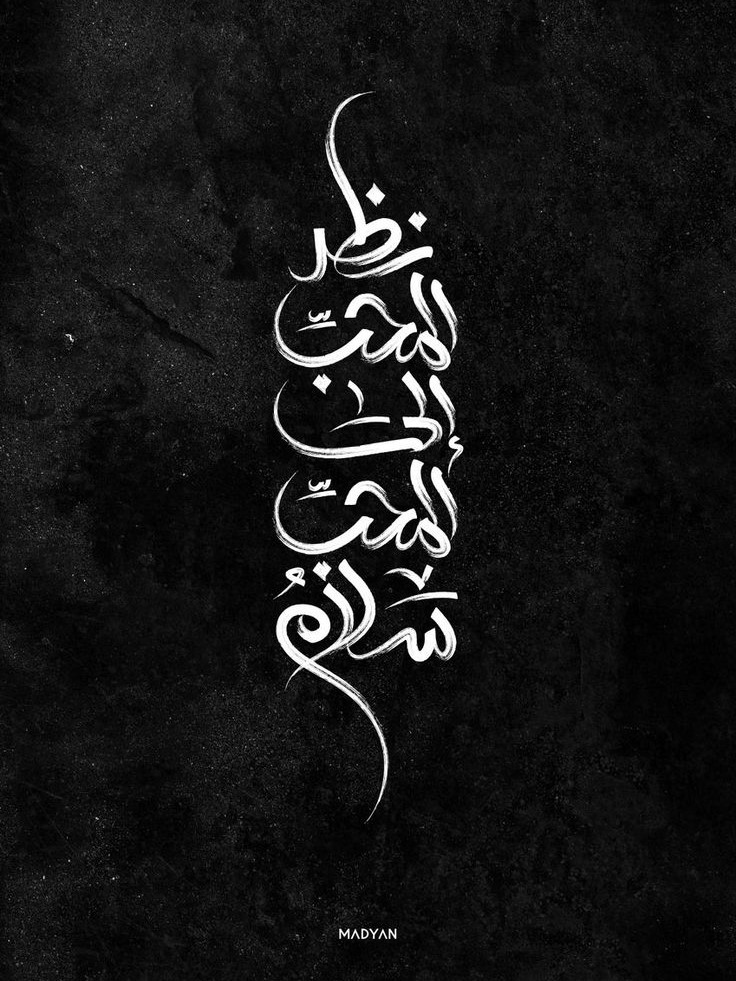 نظر
المحبّ
إلى
المحبّ
سلامُ
MADYAN